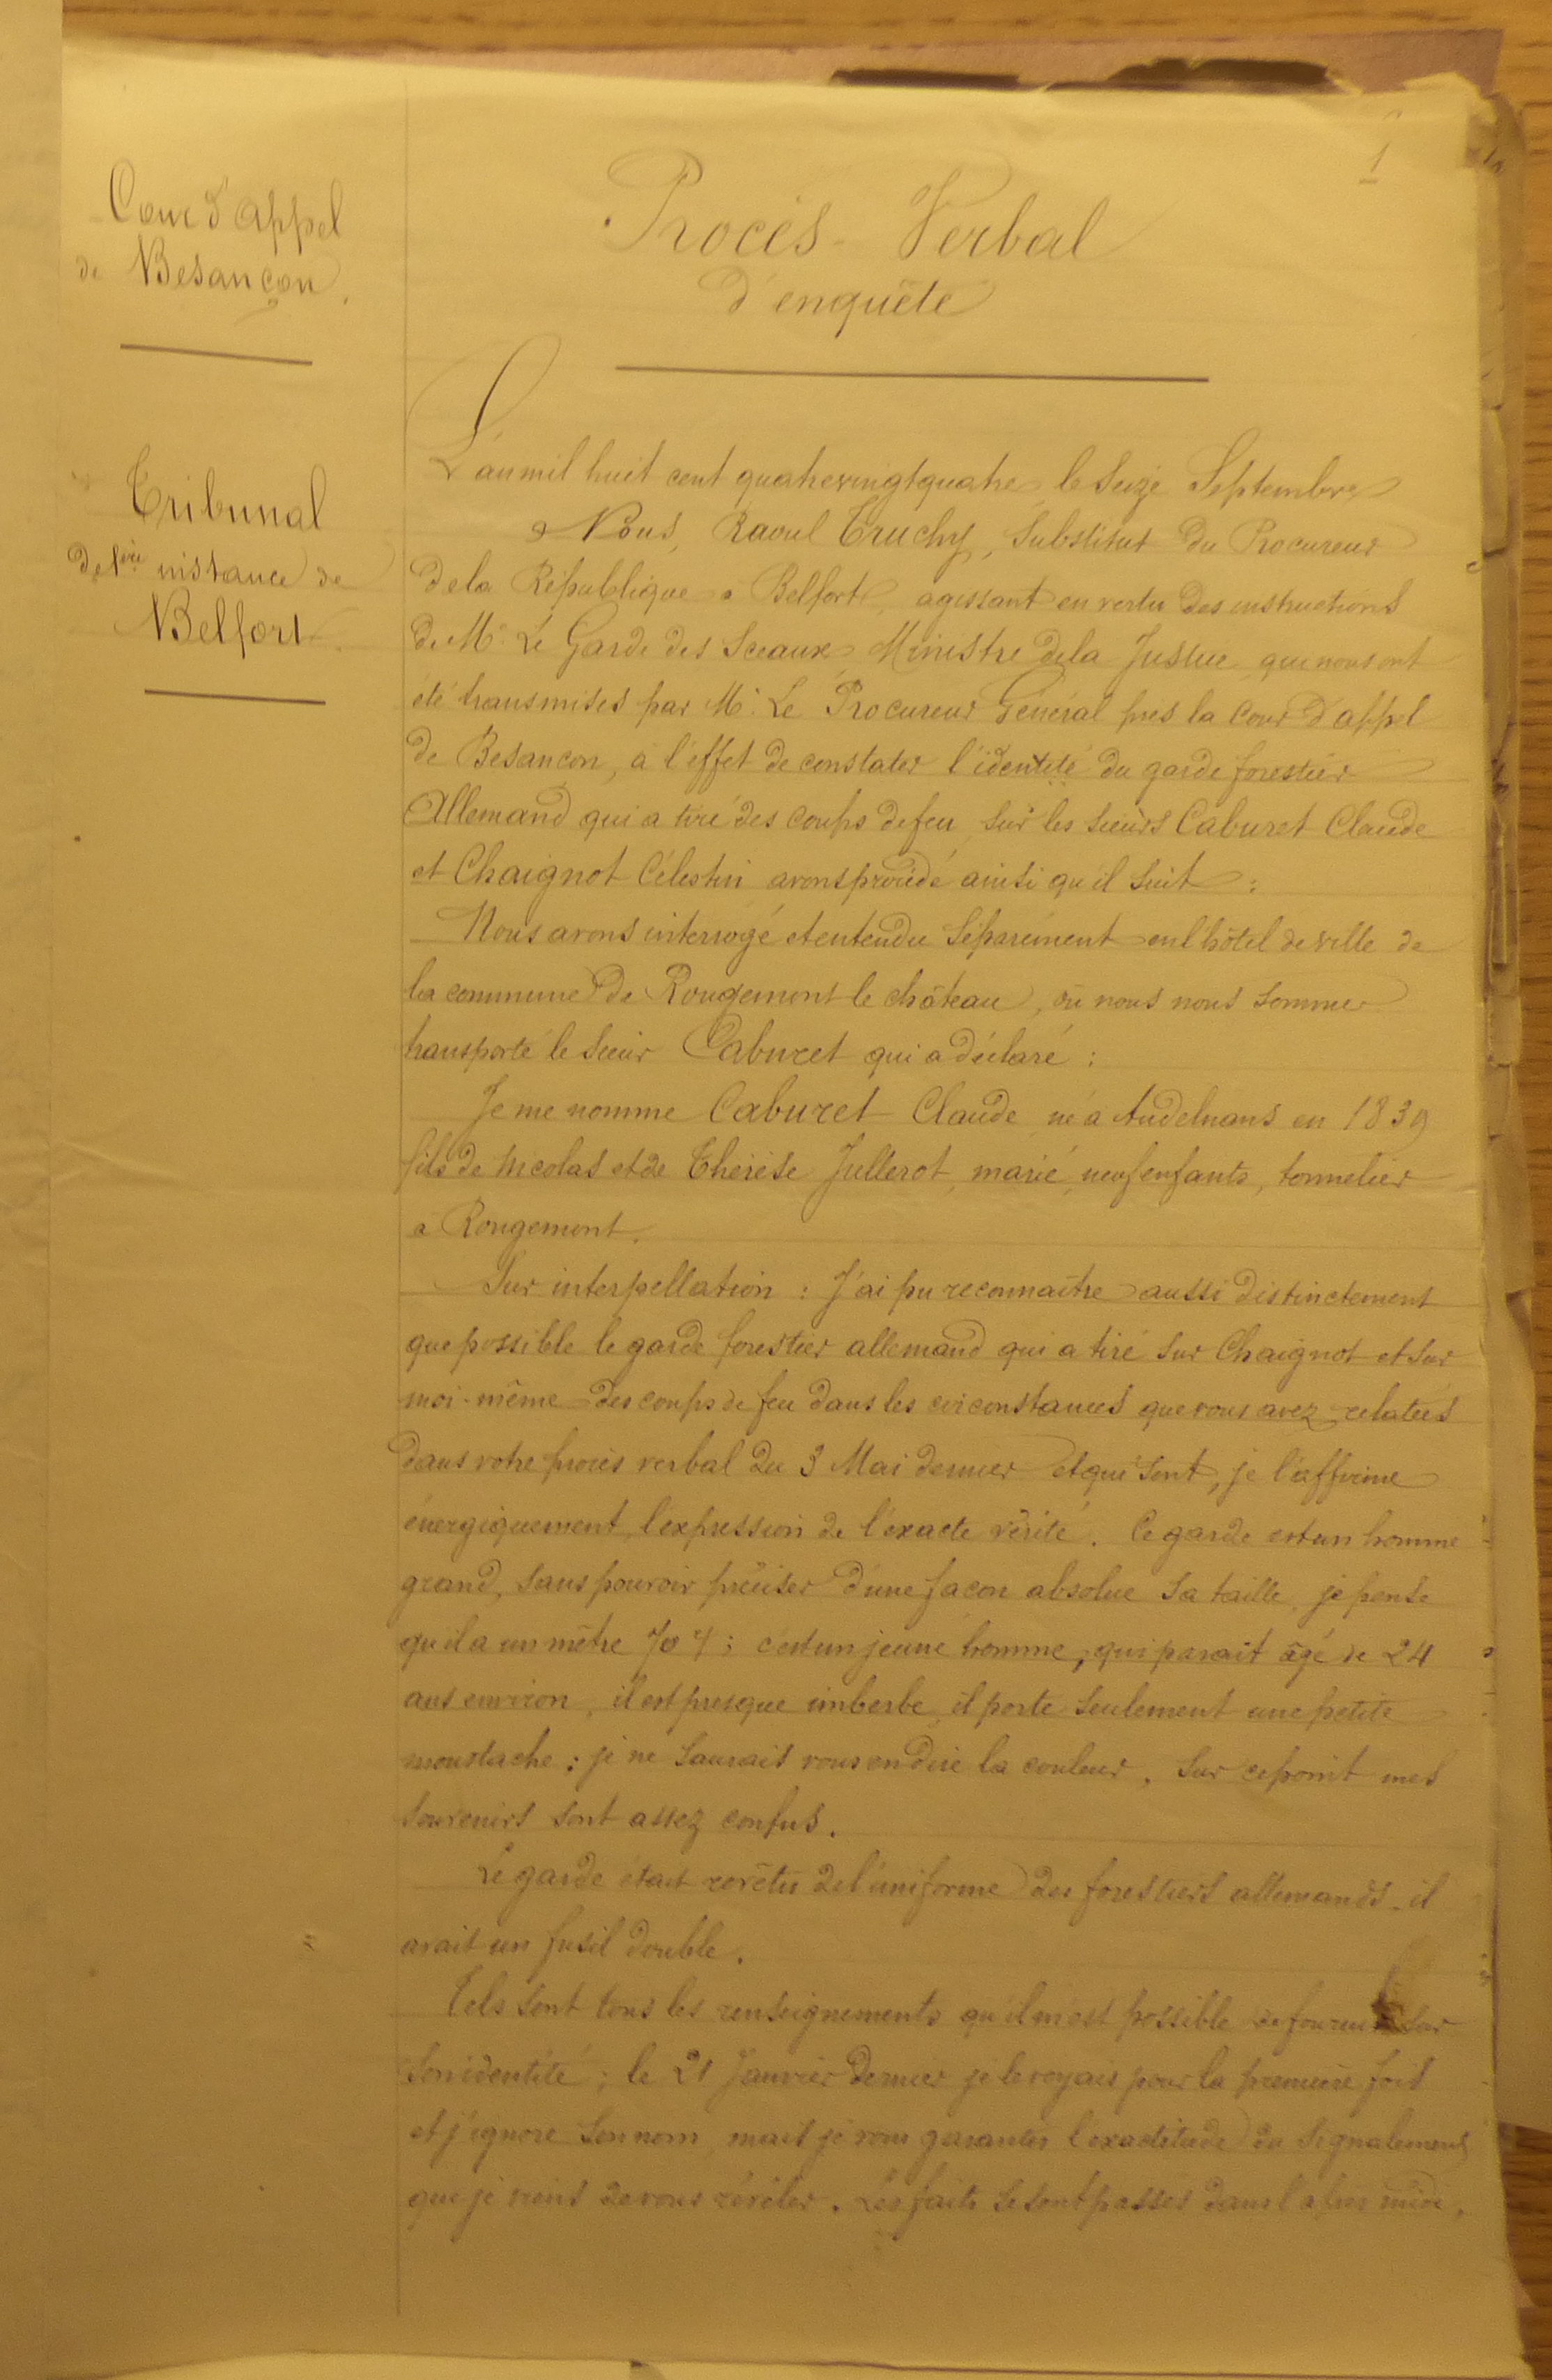 1
Cour d'appel
de Besançon.
Tribunal
de 1ère instance de
Belfort
Procès-Verbal
d'enquête
L'an mil huit cent quatrevingtquatre, le seize Septembre
Nous, Raoul Truchy, Substitut du Procureur
de la République à Belfort, agissant en vertu des instructions
de Mr Le Garde des Sceaux, Ministre de la Justice qui nous ont
été transmises par Mr Le Procureur Général près la Cour d'appel
de Besançon, à l'effet de constater l'identité du garde forestier
Allemand qui a tiré des coups de feu sur les sieurs Caburet Claude
et Chaignot Célestin avons procédé ainsi qu'il suit :
Nous avons interrogé et entendu séparément en l'hôtel de ville de
la commune de Rougemont le château, où nous nous sommes
transporté le sieur Caburet qui a déclaré :
Je me nomme Caburet Claude né à Andelnans en 1839
fils de Nicolas et de Thérèse Jullerot, marié, neuf enfants, tonnelier
à Rougemont.
Sur interpellation : J'ai pu reconnaître aussi distinctement
que possible le garde forestier allemand qui a tiré sur Chaignot et sur
moi-même des coups de feu dans les circonstances que vous avez relatées
dans votre procès verbal du 3 Mai dernier et qui sont, je l'affirme
énergiquement, l'expression de l'exacte vérité. Ce garde est un homme
grand, sans pouvoir préciser d'une façon absolue sa taille, je pense
qu'il a un mètre 70 ; c'est un jeune homme, qui parait âgé de 24
ans environ, il est presque imberbe, il porte seulement une petite
moustache ; je ne saurais vous en dire la couleur, sur ce point mes
souvenirs sont assez confus.
Le garde était revêtu de l'uniforme des forestiers allemands, il
avait un fusil double.
Tels sont tous les renseignements qu'il m'est possible de fournir sur
son identité ; le 21 Janvier dernier je le voyais pour la première fois
et j'ignore son nom mais je vous garantis l'exactitude du signalement
que je viens de vous révéler. Les faits se sont passés dans l'après midi,